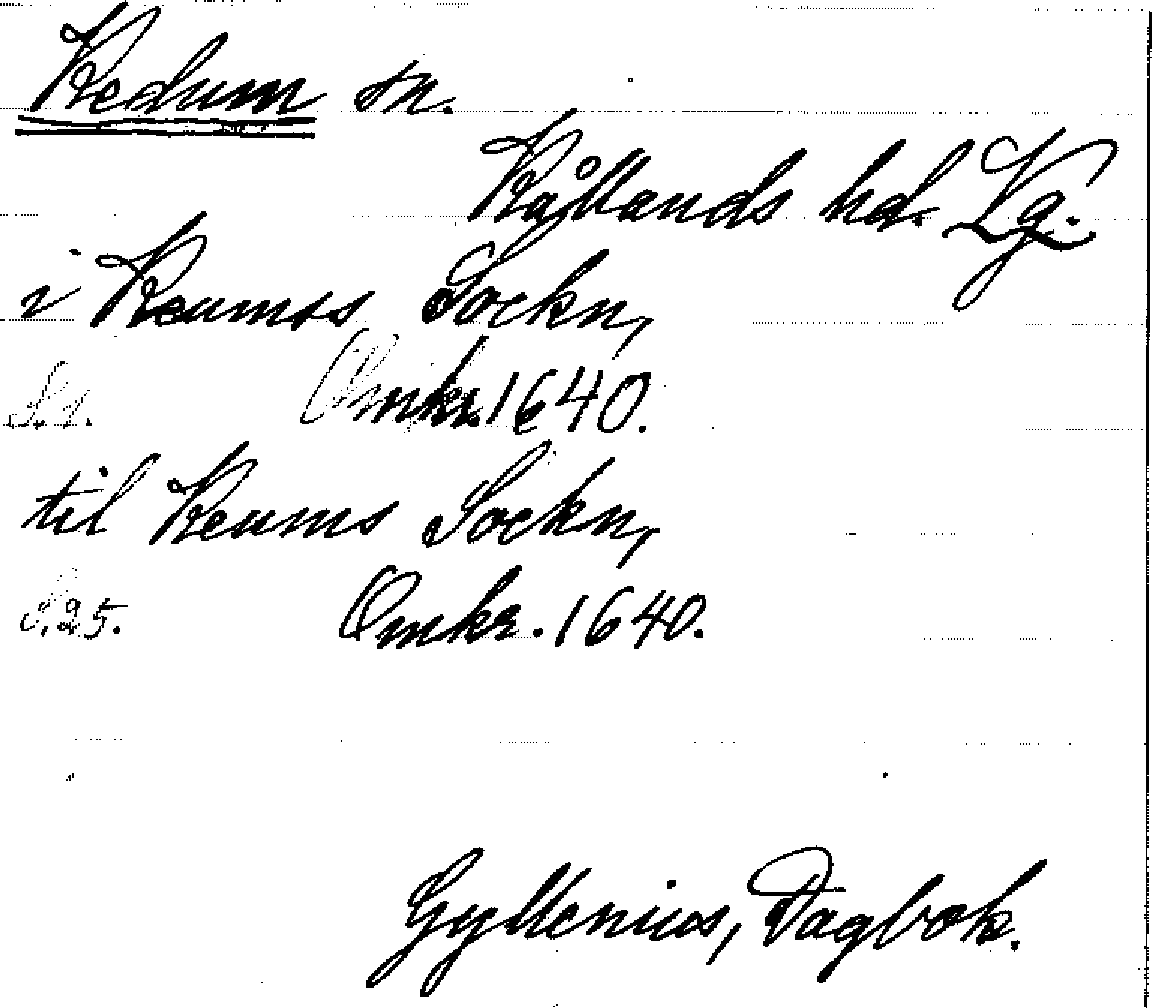 Kedum sn.
Kållands hd. Vg.
i Keumss Sockn,
S. 1. Omkr. 1640.
til Keums Sockn,
S. 25. Omkr. 1640.
Gyllenius, Dagbok.